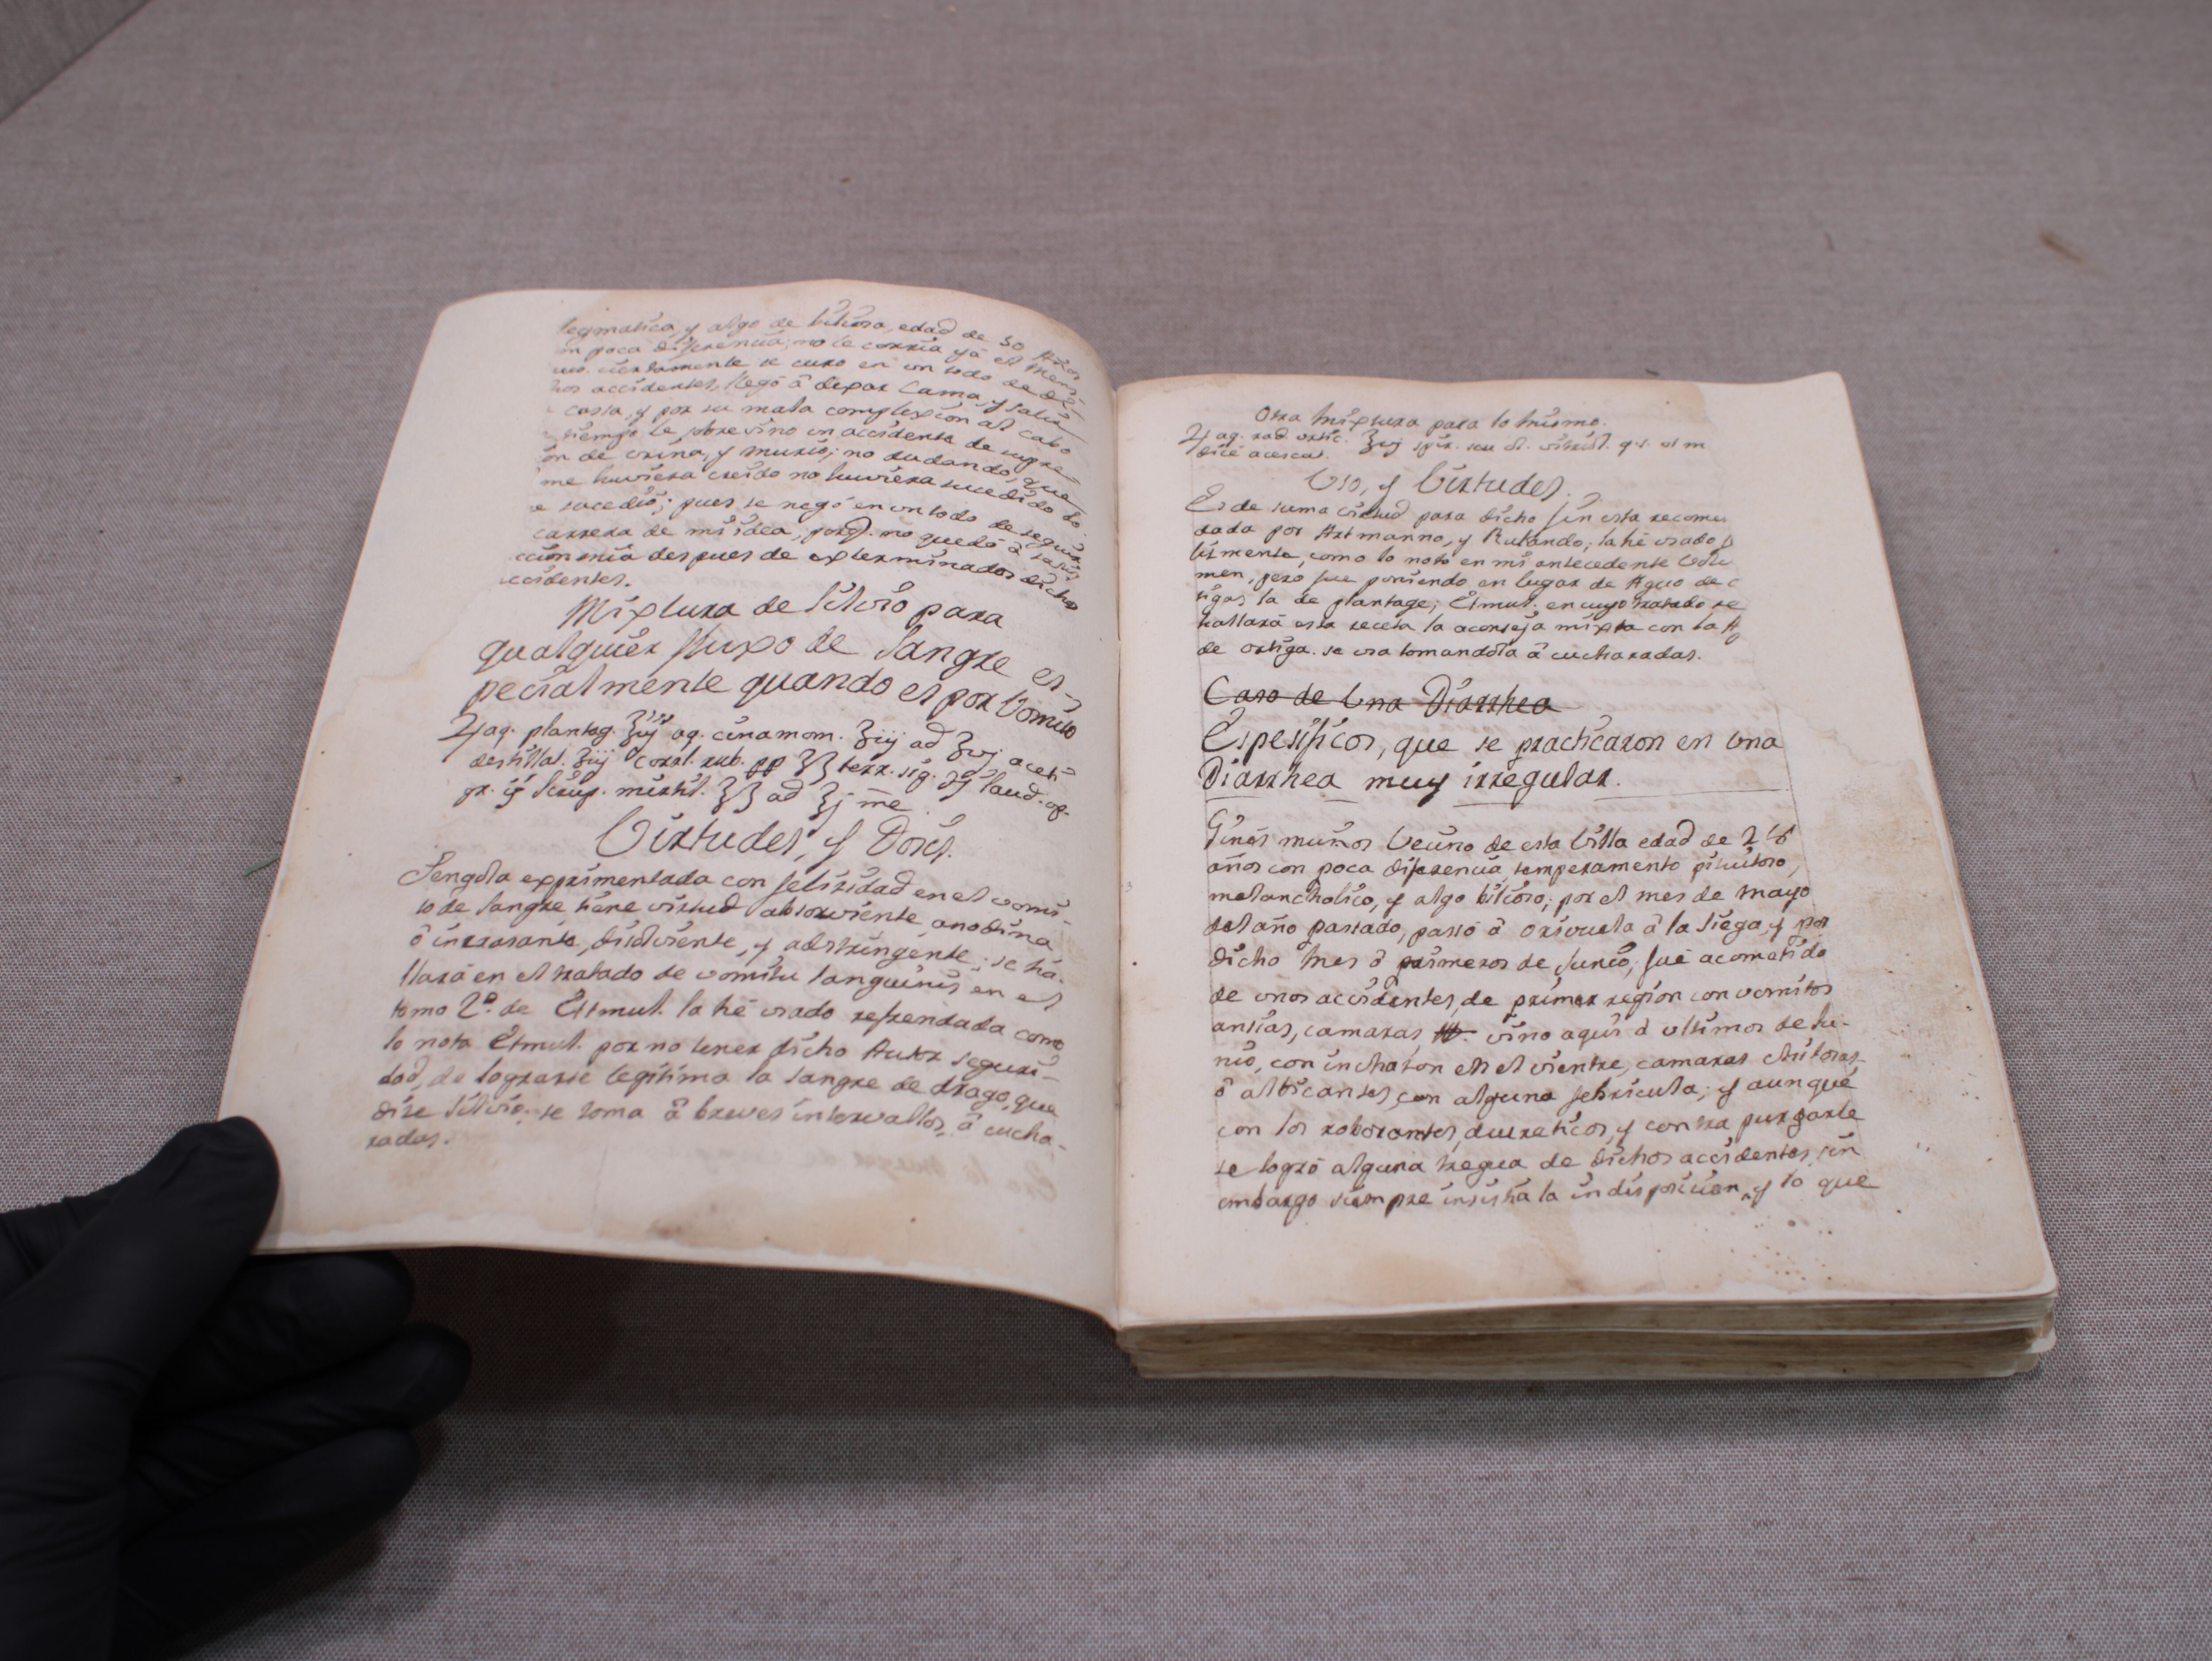 legmatica, y algo de biliosa, edad de 50 Años
on poca diferencia; no le corria yá el Mens
uo. ciertamente se curo en un todo de di
hos accidentes, llegó â dexar Cama, y salir
casa, y por su mala complexion al cabo
tiempo le sobrevino un accidente de supre
on de orina, y murio; no dudando, que
me huviera creido no huviera sucedido lo
e sucedió; pues se negó en un todo de seguir
carrera de mi idea, porq. no quedó â
despues de exterminados dichos
ccidentes.
Mixtura de Silvio para
qualquier fluxo de Sangre es-
pecialmente quando es por Vomito
♃ aq. plantag. ℥iij aq. cinamom. ℥iij ad ℥vj aceti
destillat. ℥iij Coral. rub. pp ʒβ terr. sig. ʒj laud. op.
gr. ij Sirup. mirthil. ℥β ad ℥j me
Virtudes, y Dosis.
Tengola exprimentada con felizidad en el vomi-
to de sangre, tiene virtud absorviente, anodina
ô incrasante, disolviente, y adstringente; se ha-
llará en el tratado de vomitu sanguinis en el
tomo 2º. de Etmul. la hé usado refrendada como
lo nota Etmul. por no tener dicho Autor seguri-
dad, de lograrse legitima la sangre de drago, que
dize Silvio; se toma â breves intervallos, â cucha-
radas.
Otra Mixtura para lo mismo.
♃ aq. rad. urtic. ℥vj spir. seu ol. vitriol. q. s. ut m
dicè acescat.
Uso, y Virtudes.
Es de suma virtud para dicho fin esta recomen
dada por Artmanno, y Rulando; la hé usado f
lizmente, como lo noto en mi antecedente Volu
men, pero fue poniendo en lugar de Agua de o
tigas la de plantage; Etmul. en cuyo tratado se
hallará esta receta la aconseja mixta con la Ag
de ortiga. se usa tomandola â cucharadas.
Caso de Una Diarrhea
Espesificos, que se practicaron en Una
Diarrhea muy irregular.
Ginés muños Vecino de esta Villa edad de 28
años con poca diferencia, temperamento pituitoso,
melancholico, y algo bilioso; por el mes de Mayo
del año passado, passó â Orihuela â la siega, y por
dicho Mes ô primeros de Junio, fué acometido
de unos accidentes, de primer region con vomitos
ansias, camaras, vino aqui â ultimos de Ju-
nio, con inchazon en el vientre, camaras chilosas
ô albicantes, con alguna febricula; y aunque
con los roborantes, diureticos, y contra purgante
se logró alguna tregua de dichos accidentes, sin
embargo siempre insistia la indisposicion, y lo que